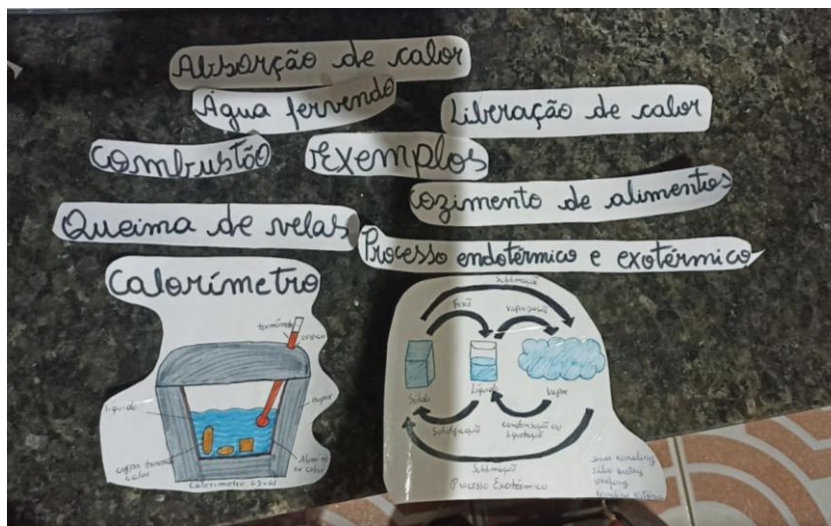 Absorção de calor
Água fervendo
Liberação de calor
Combustão
Exemplos
Cozimento de alimentos
Queima de velas
Processo endotérmico e exotérmico
Calorímetro
termômetro
líquido
Calorímetro
Sublimação
Fusão
Vaporização
Sólido
Líquido
Vapor
Solidificação
Condensação ou
Liquefação
Sublimação
Processo Exotérmico